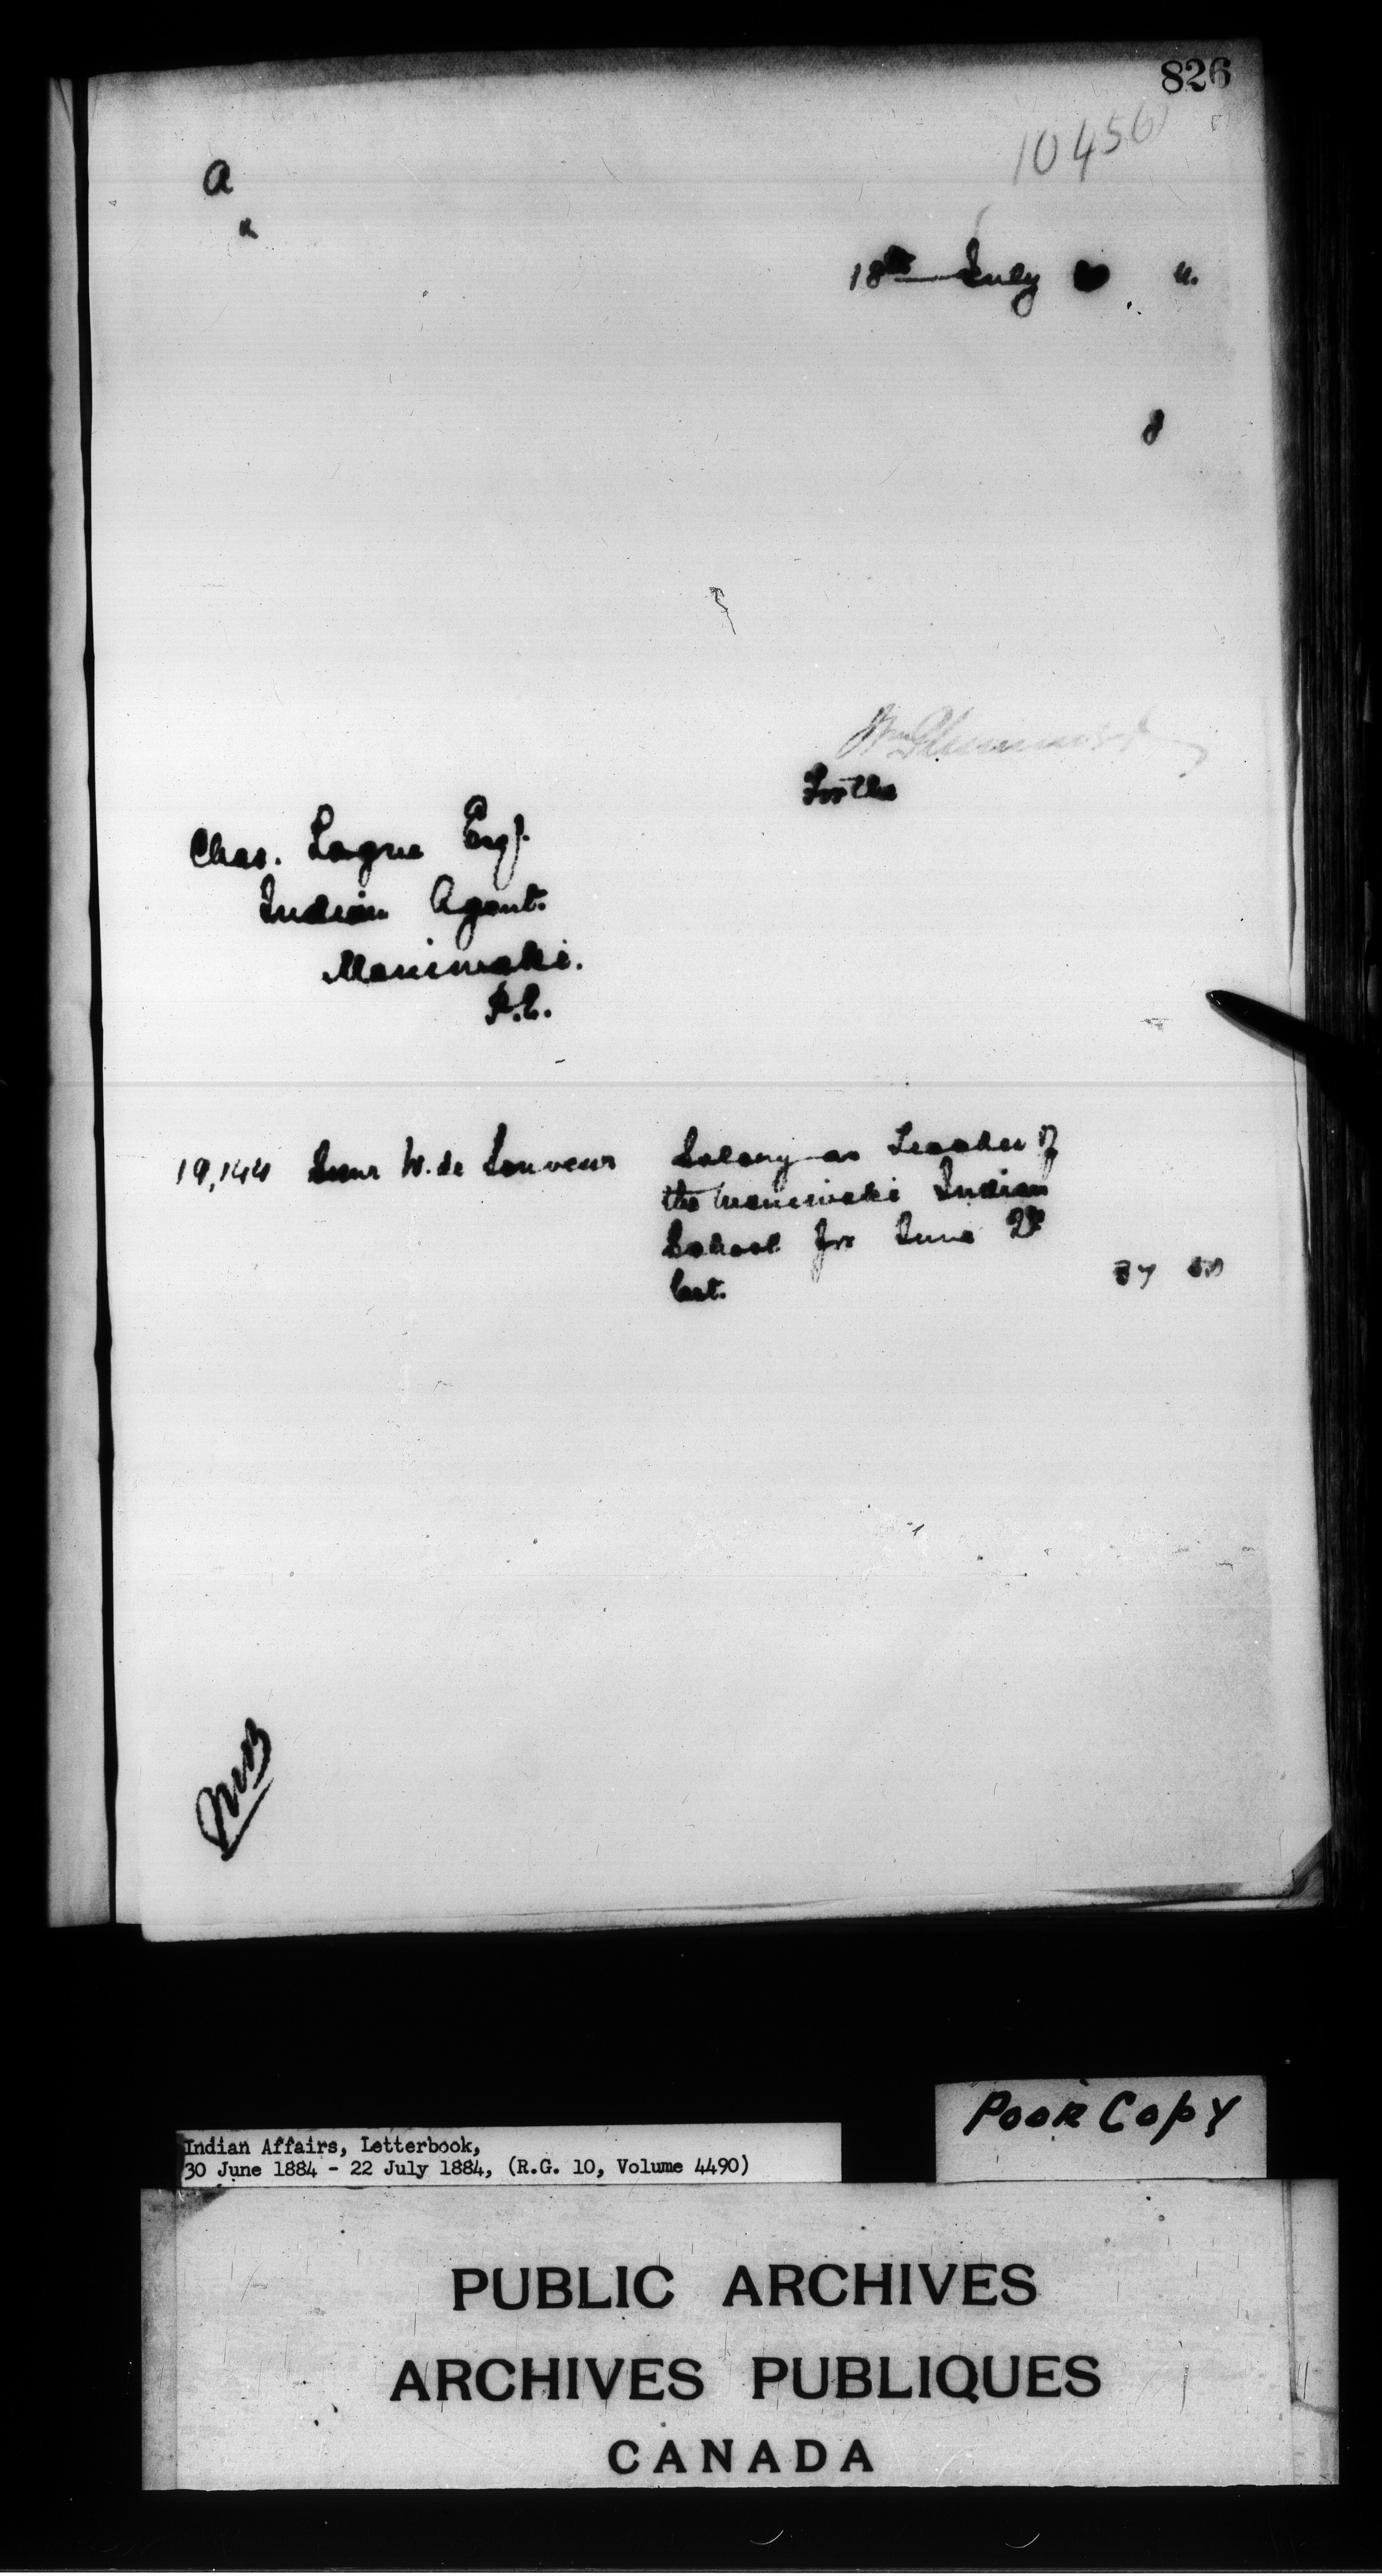 826
10456
a
18th July 4.
8
Wm Plummer
For the
Chas. Logue Esq.
Indian Agent.
Maniwaki.
P.Q.
19,144 Soeur W. de Sauveur Salary as Teacher of
the Maniwaki Indian
School for June Qr
last. 37 50
Poor Copy
Indian Affairs, Letterbook,
30 June 1884 - 22 July 1884, (R.G. 10, Volume 4490)
PUBLIC ARCHIVES
ARCHIVES PUBLIQUES
CANADA